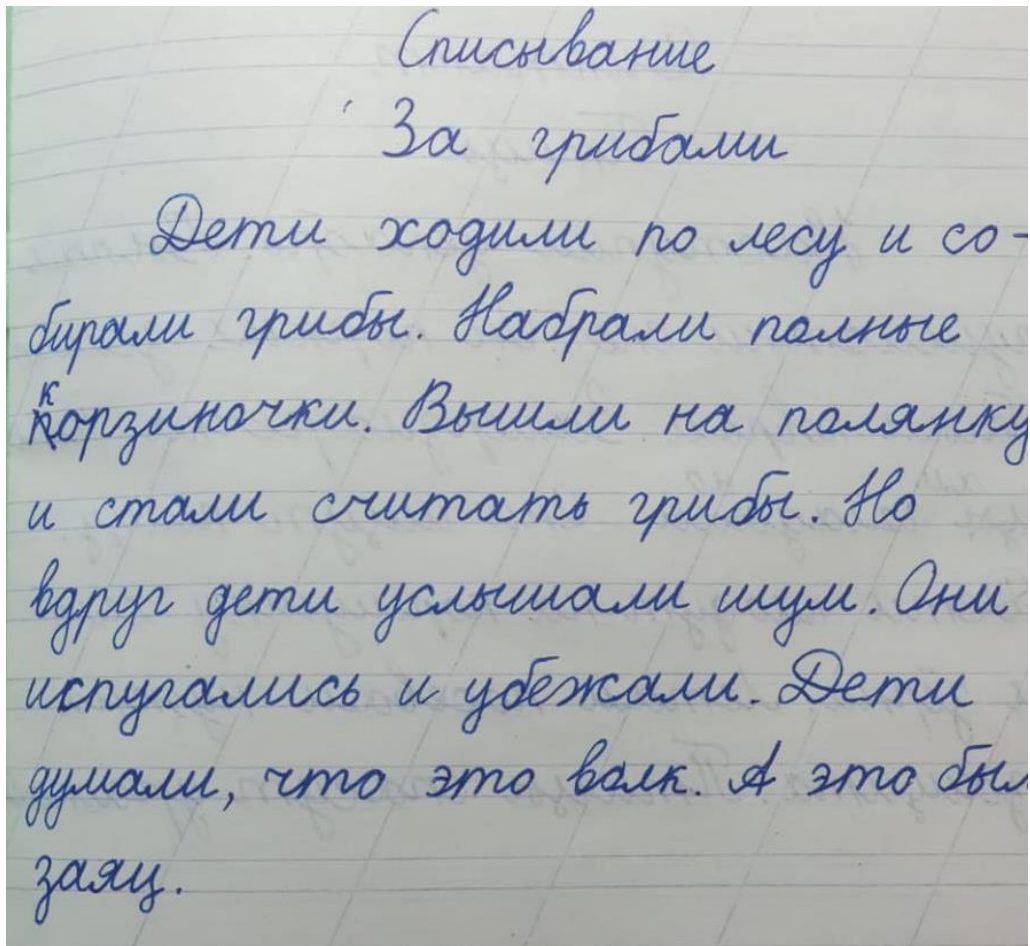 Списывание
За грибами
Дети ходили по лесу и со-
бирали грибы. Набрали полные
корзиночки. Вышли на полянку
и стали считать грибы. Но
вдруг дети услышали шум. Они
испугались и убежали. Дети
думали, что это волк. А это был
заяц.